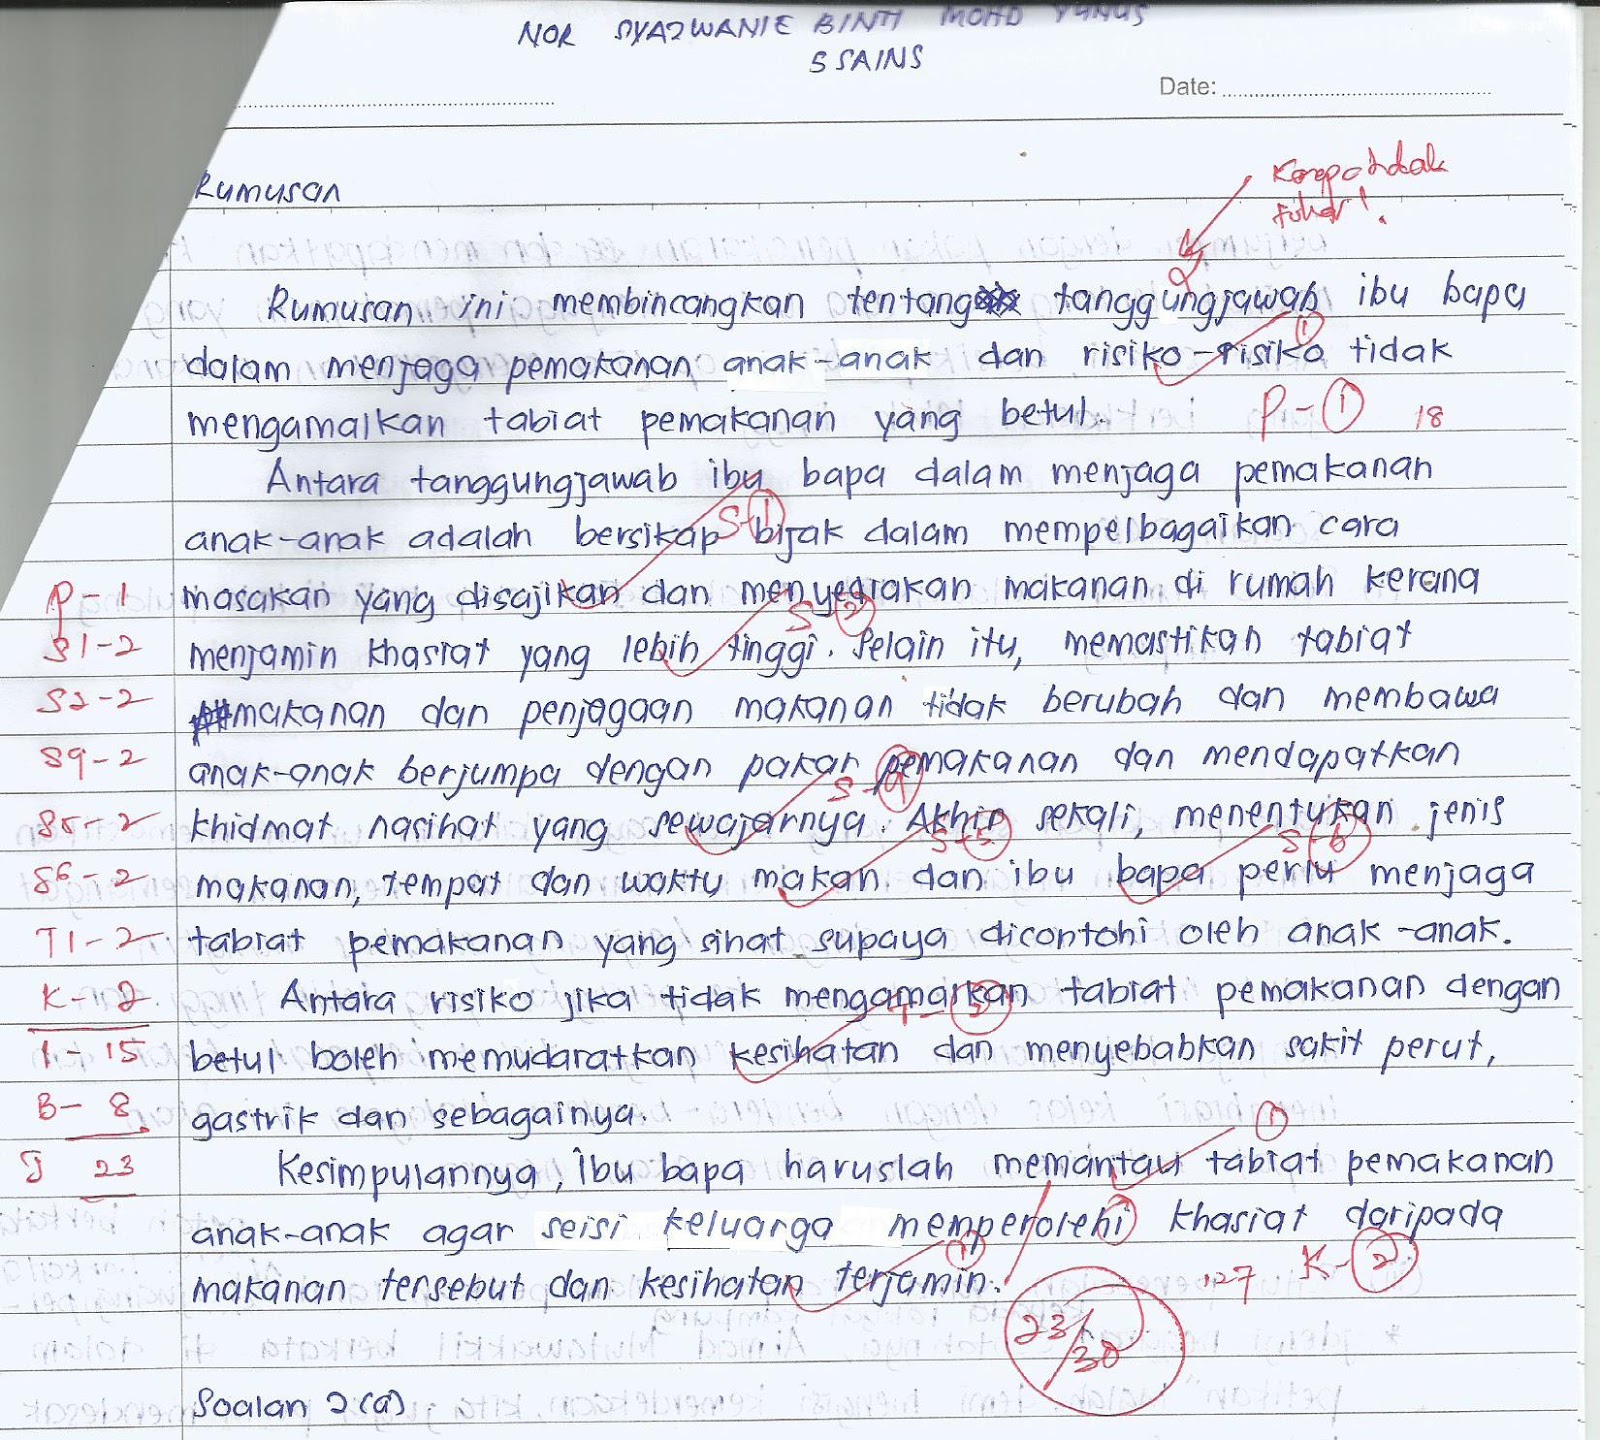 NOR SYAZWANIE BINTI MOHD YUNUS
5 SAINS
Date:
Rumusan
Rumusan ini membincangkan tentang tanggungjawab ibu bapa
dalam menjaga pemakanan anak-anak dan risiko-risiko tidak
mengamalkan tabiat pemakanan yang betul. P-1 18
Antara tanggungjawab ibu bapa dalam menjaga pemakanan
anak-anak adalah bersikap bijak dalam mempelbagaikan cara
S-1
P-1 masakan yang disajikan dan menyediakan makanan di rumah kerana
S-2
S1-2 menjamin khasiat yang lebih tinggi. Selain itu, memastikan tabiat
S2-2 makanan dan penjagaan makanan tidak berubah dan membawa
S9-2 anak-anak berjumpa dengan pakar pemakanan dan mendapatkan
S-9
S5-2 khidmat nasihat yang sewajarnya. Akhir sekali, menentukan jenis
S-5 S-6
S6-2 makanan, tempat dan waktu makan dan ibu bapa perlu menjaga
T1-2 tabiat pemakanan yang sihat supaya dicontohi oleh anak-anak.
K-2 Antara risiko jika tidak mengamalkan tabiat pemakanan dengan
I-15 betul boleh memudaratkan kesihatan dan menyebabkan sakit perut,
B-8 gastrik dan sebagainya.
J 23 Kesimpulannya, ibu bapa haruslah memantau tabiat pemakanan
anak-anak agar seisi keluarga memperolehi khasiat daripada
makanan tersebut dan kesihatan terjamin. 127 K-2
23/30
Soalan 2(a)